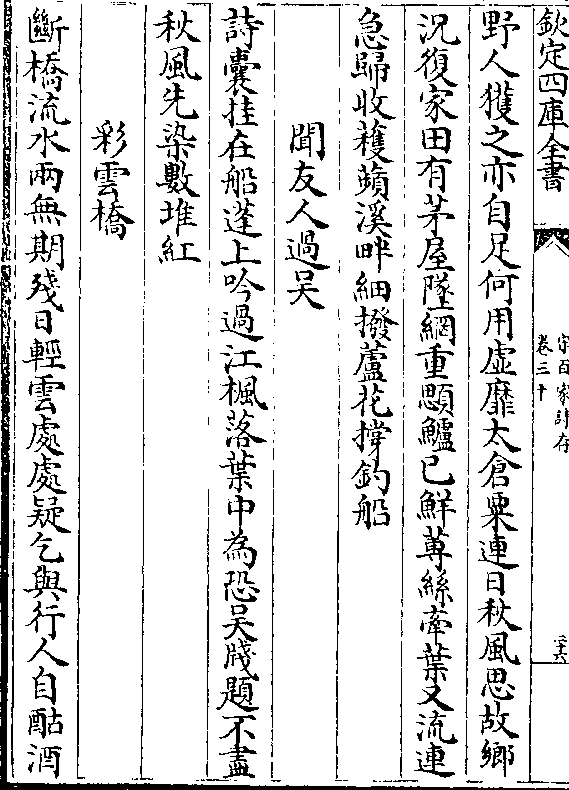 欽定四庫全書
宋百家詩存
卷三十
三六
野人獲之亦自足何用虛靡太倉粟連日秋風思故鄉
況復家田有茅屋墜網重顋鱸已鮮蓴絲牽葉又流連
急歸收穫蘋溪畔細撥蘆花撐釣船
聞友人過吴
詩囊挂在船蓬上吟過江楓落葉中為恐吴牋題不盡
秋風先染數堆紅
彩雲橋
斷橋流水兩無期殘日輕雲處處疑乞與行人自酤酒